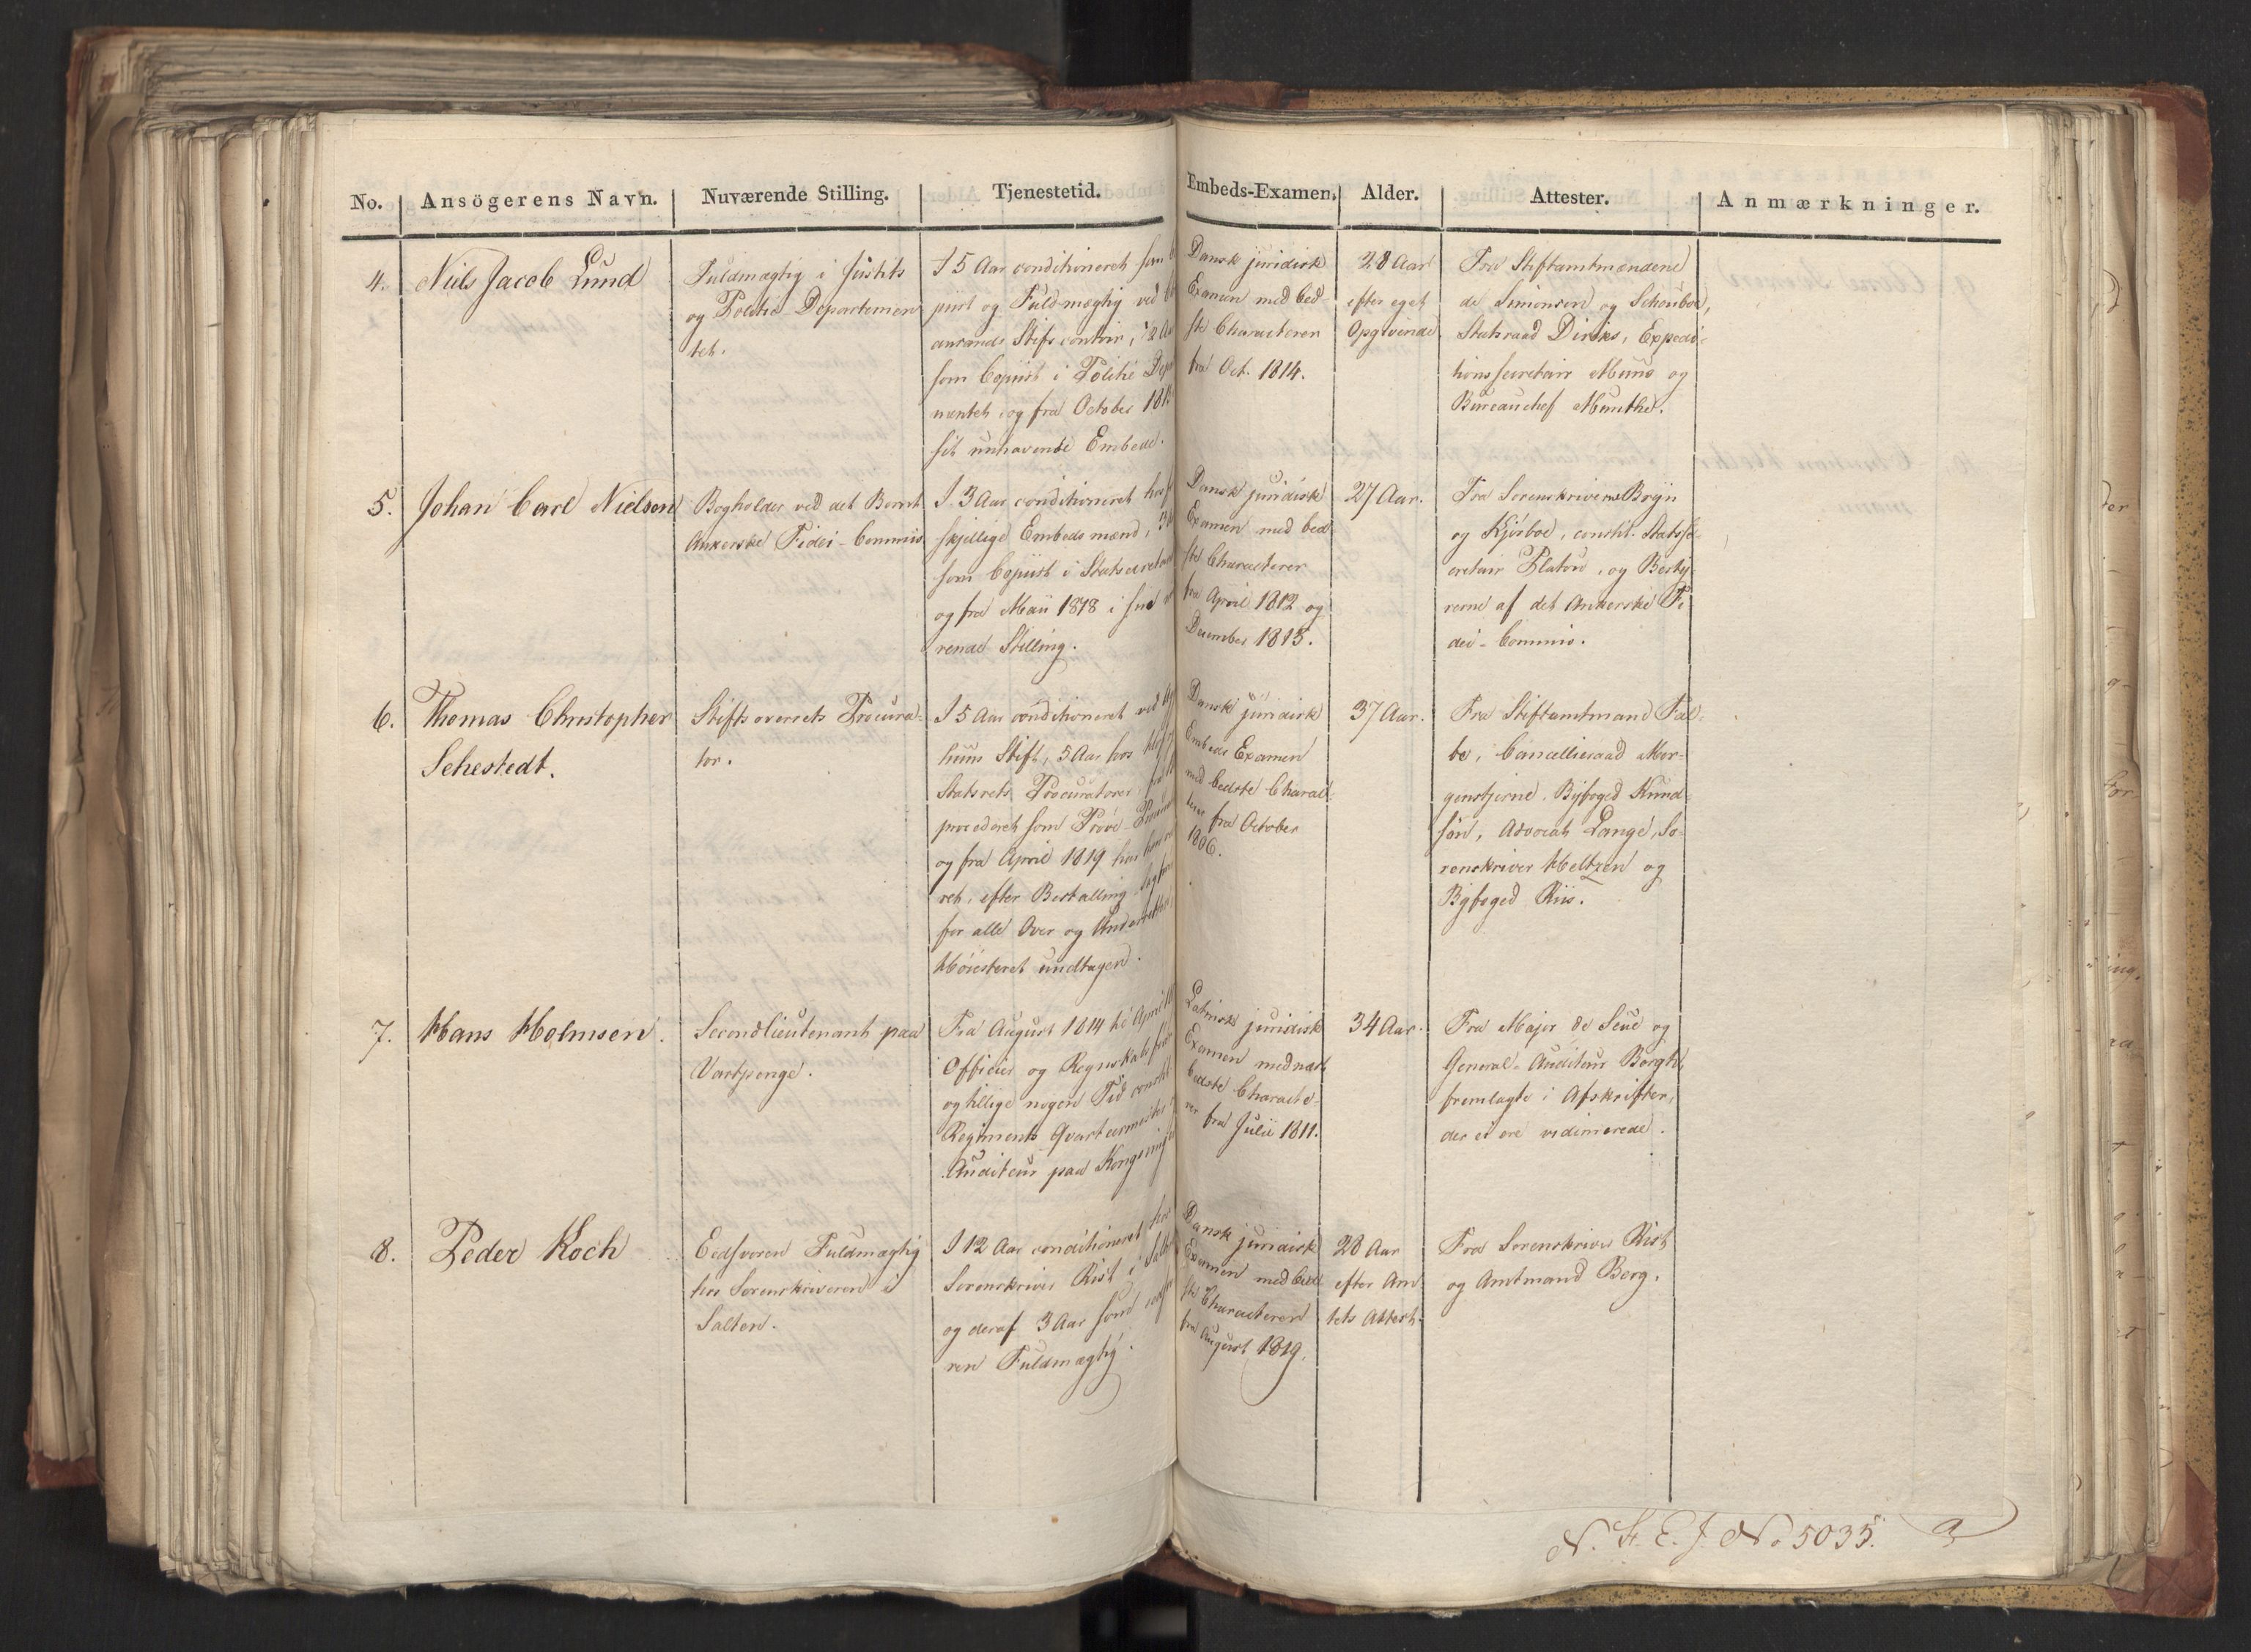 No. Ansögerens Navn. Nuværende Stilling. Tjenestetid. Embeds-Examen. Alder. Attester. Anmærkninger.
4. Niels Jacob Lund
Fuldmægtig i Justits
og Politie-Departemen
tet.
I 5 Aar conditioneret som
piist og Fuldmægtig ved
Stifts contoir, 2
som Copiist i Politie
mentet, og fra October
sit nuhavende Embede.
Dansk juridisk
Examen med bed-
ste Characterer
fra Oct. 1814.
28 Aar
efter eget
Opgivende.
Fra Stiftamtmændene
de Simonsen og Schouboe,
Statsraad Diriks, Expedi-
tionssecretair Muus og
Bureauchef Munthe.
5. Johan Carl Nielsen
Bogholder ved det Bernt
Ankerske Fidei-Commis
I 3 Aar conditioneret hos
skjellige Embedsmænd,
som Copiist i
og fra Maii 1818 i
rende Stilling.
Dansk juridisk
Examen med bed
ste Characterer
fra April 1812 og
December 1815.
27 Aar.
Fra Sorenskriverne Bryn
og Kjørboe, constit. Statsse-
cretair Platou, og Besty-
rerne af det Ankerske Fi
dei-Commis.
6. Thomas Christopher
Sehestedt.
Stiftsoverrets Procura-
tor.
I 5 Aar conditioneret ved
huus Stift, 5 Aar hos
Statsrets Procuratorer,
procederet som Prøve-
og fra April 1819 har
ret, efter Bestalling
for alle Over og Underretter,
Høiesteret undtagen.
Dansk juridisk
Embeds Examen
med bedste Charac-
terer fra October
1806.
37 Aar.
Fra Stiftamtmand Fal-
be, Cancelliraad Mor-
genstjerne, Byfoged Knud-
sen, Advocat Lange, So-
renskriver Heltzen og
Byfoged Riis.
7. Hans Holmsen.
Secondlieutenant paa
Vartpenge.
Fra August 1814 til April
Officier og Regnskabsfører
og tillige nogen Tid constit.
Regiments Qvarteermester
Auditeur paa Kongsvinger
Latinsk juridisk
Examen med næst
bedste Characte-
rer fra Julii 1811.
34 Aar.
Fra Major de Seue og
General-Auditeur Bergh,
fremlagte i Afskrifter,
der ei ere vidimerede.
8. Peder Koch
Eedsvoren Fuldmægtig
hos Sorenskriveren i
Salten.
I 12 Aar conditioneret hos
Sorenskriver Rist i
og deraf 3 Aar som
ren Fuldmægtig.
Dansk juridisk
Examen med bed
ste Characterer
fra August 1819.
28 Aar
efter Am
tets Attest.
Fra Sorenskriver Rist
og Amtmand Berg.
N. St. E. J. No 5035. a